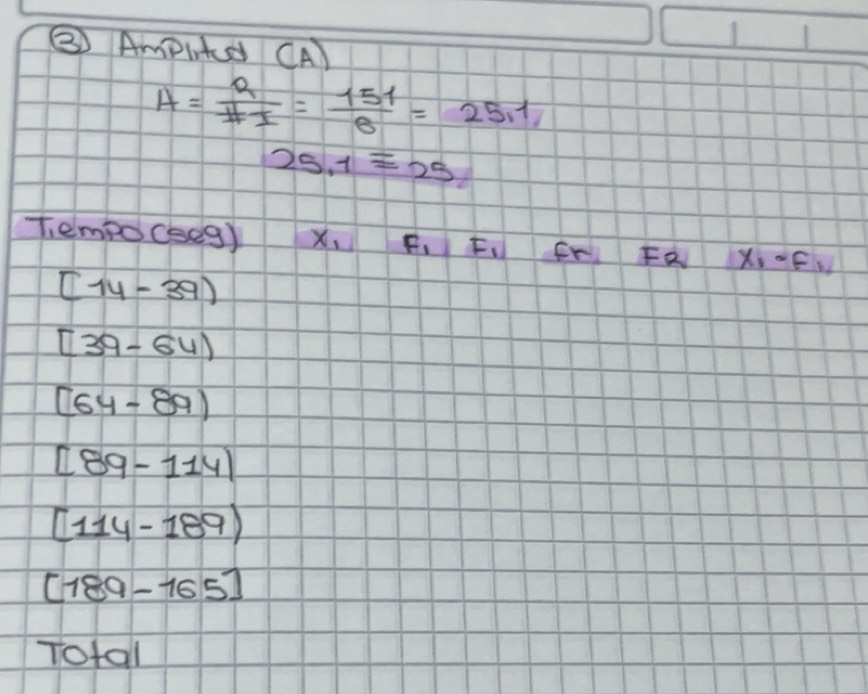 ③ Amplitud (A)
A = R/#I = 151/6 = 25,1
25,1 ≡ 25
Tiempo (seg) X₁ F₁ F₁ fr FR X₁-F₁
[14 - 39)
[39 - 64)
[64 - 89)
[89 - 114)
[114 - 189)
[189 - 165]
Total